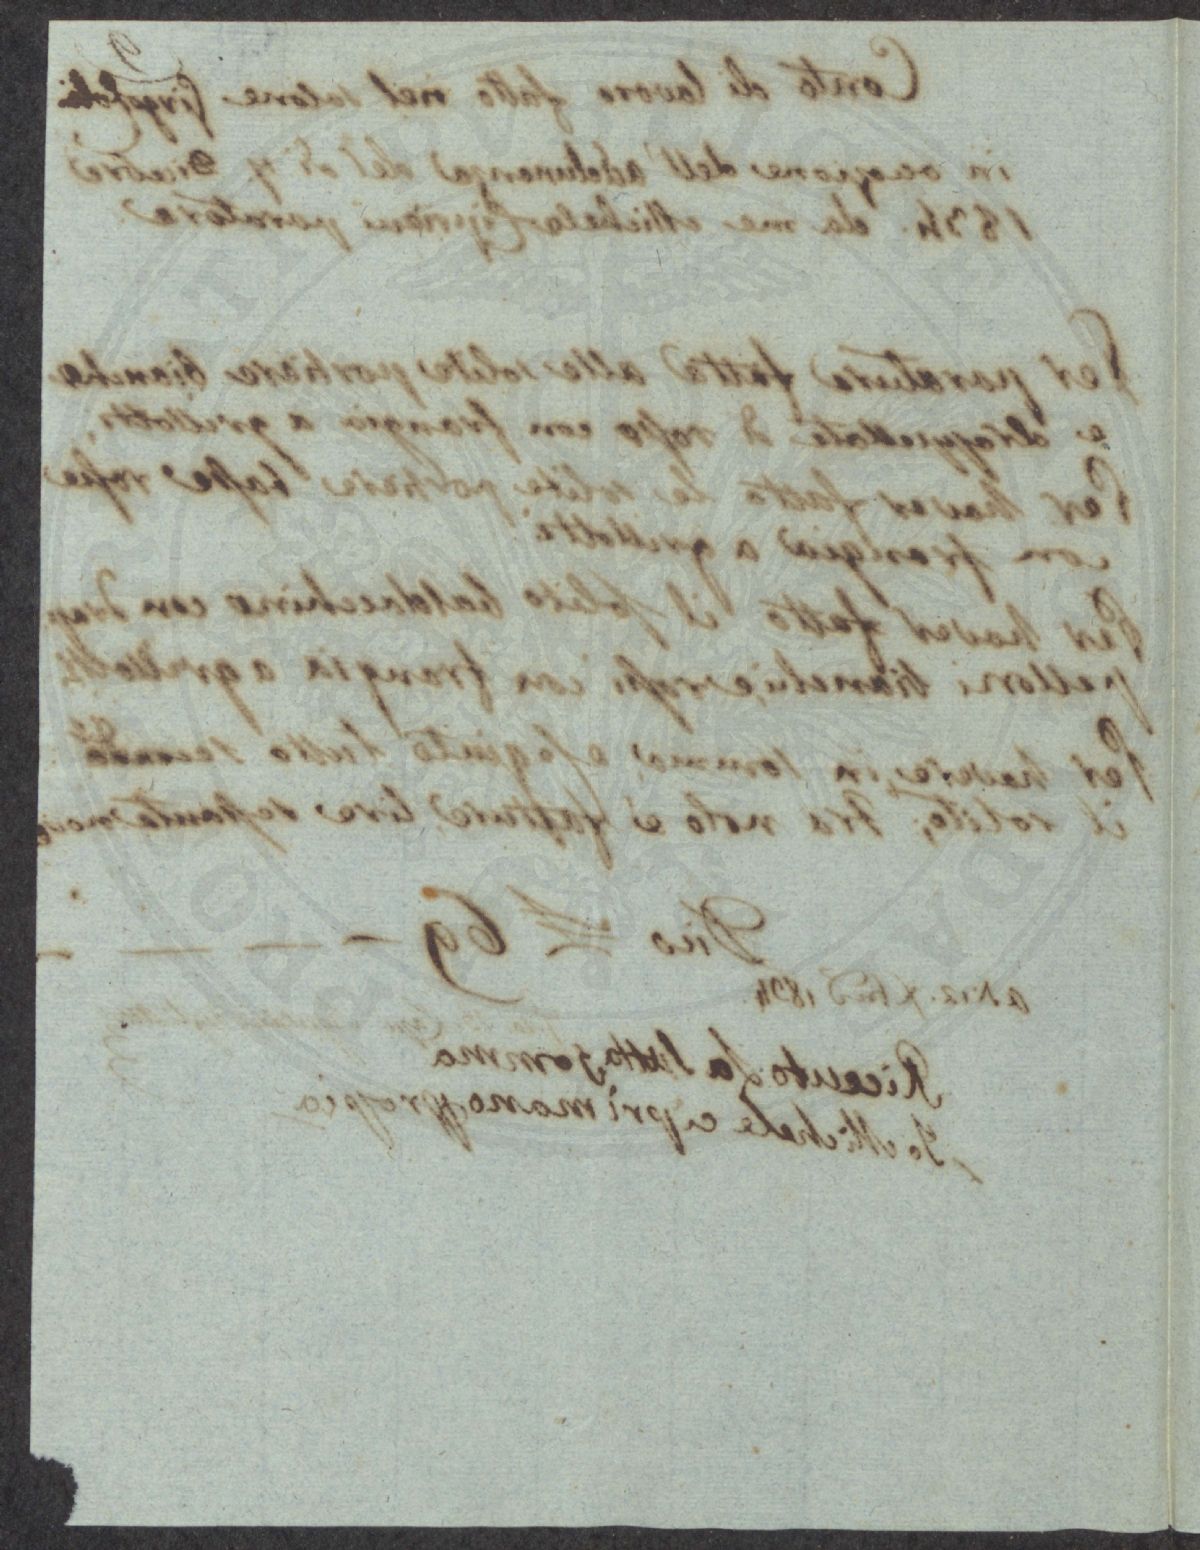 9
Conto di lavoro fatto nel salone
in ocasione dell'adunanza del dì 7 Dicebre
1834. da me Michele Cipriani paratore
Per paratura fatta alle solite portiere bianche
e drappellate di rosso con frangia a grillotti,
Per haver fatto le solite portiere basse rosse
con frangia a grillotti
Per haver fatto il solito baldacchino con drap
pelloni bianchi, e rossi con frangia a grillotti
Per havere in somma eseguito tutto secondo
il solito, tra nolo e fatture lire sessantanove
Dico 69 — — — —
a dì 12. Xbre 1834.
Riceuto La sudetta somma
Io Michele cipri mano propia